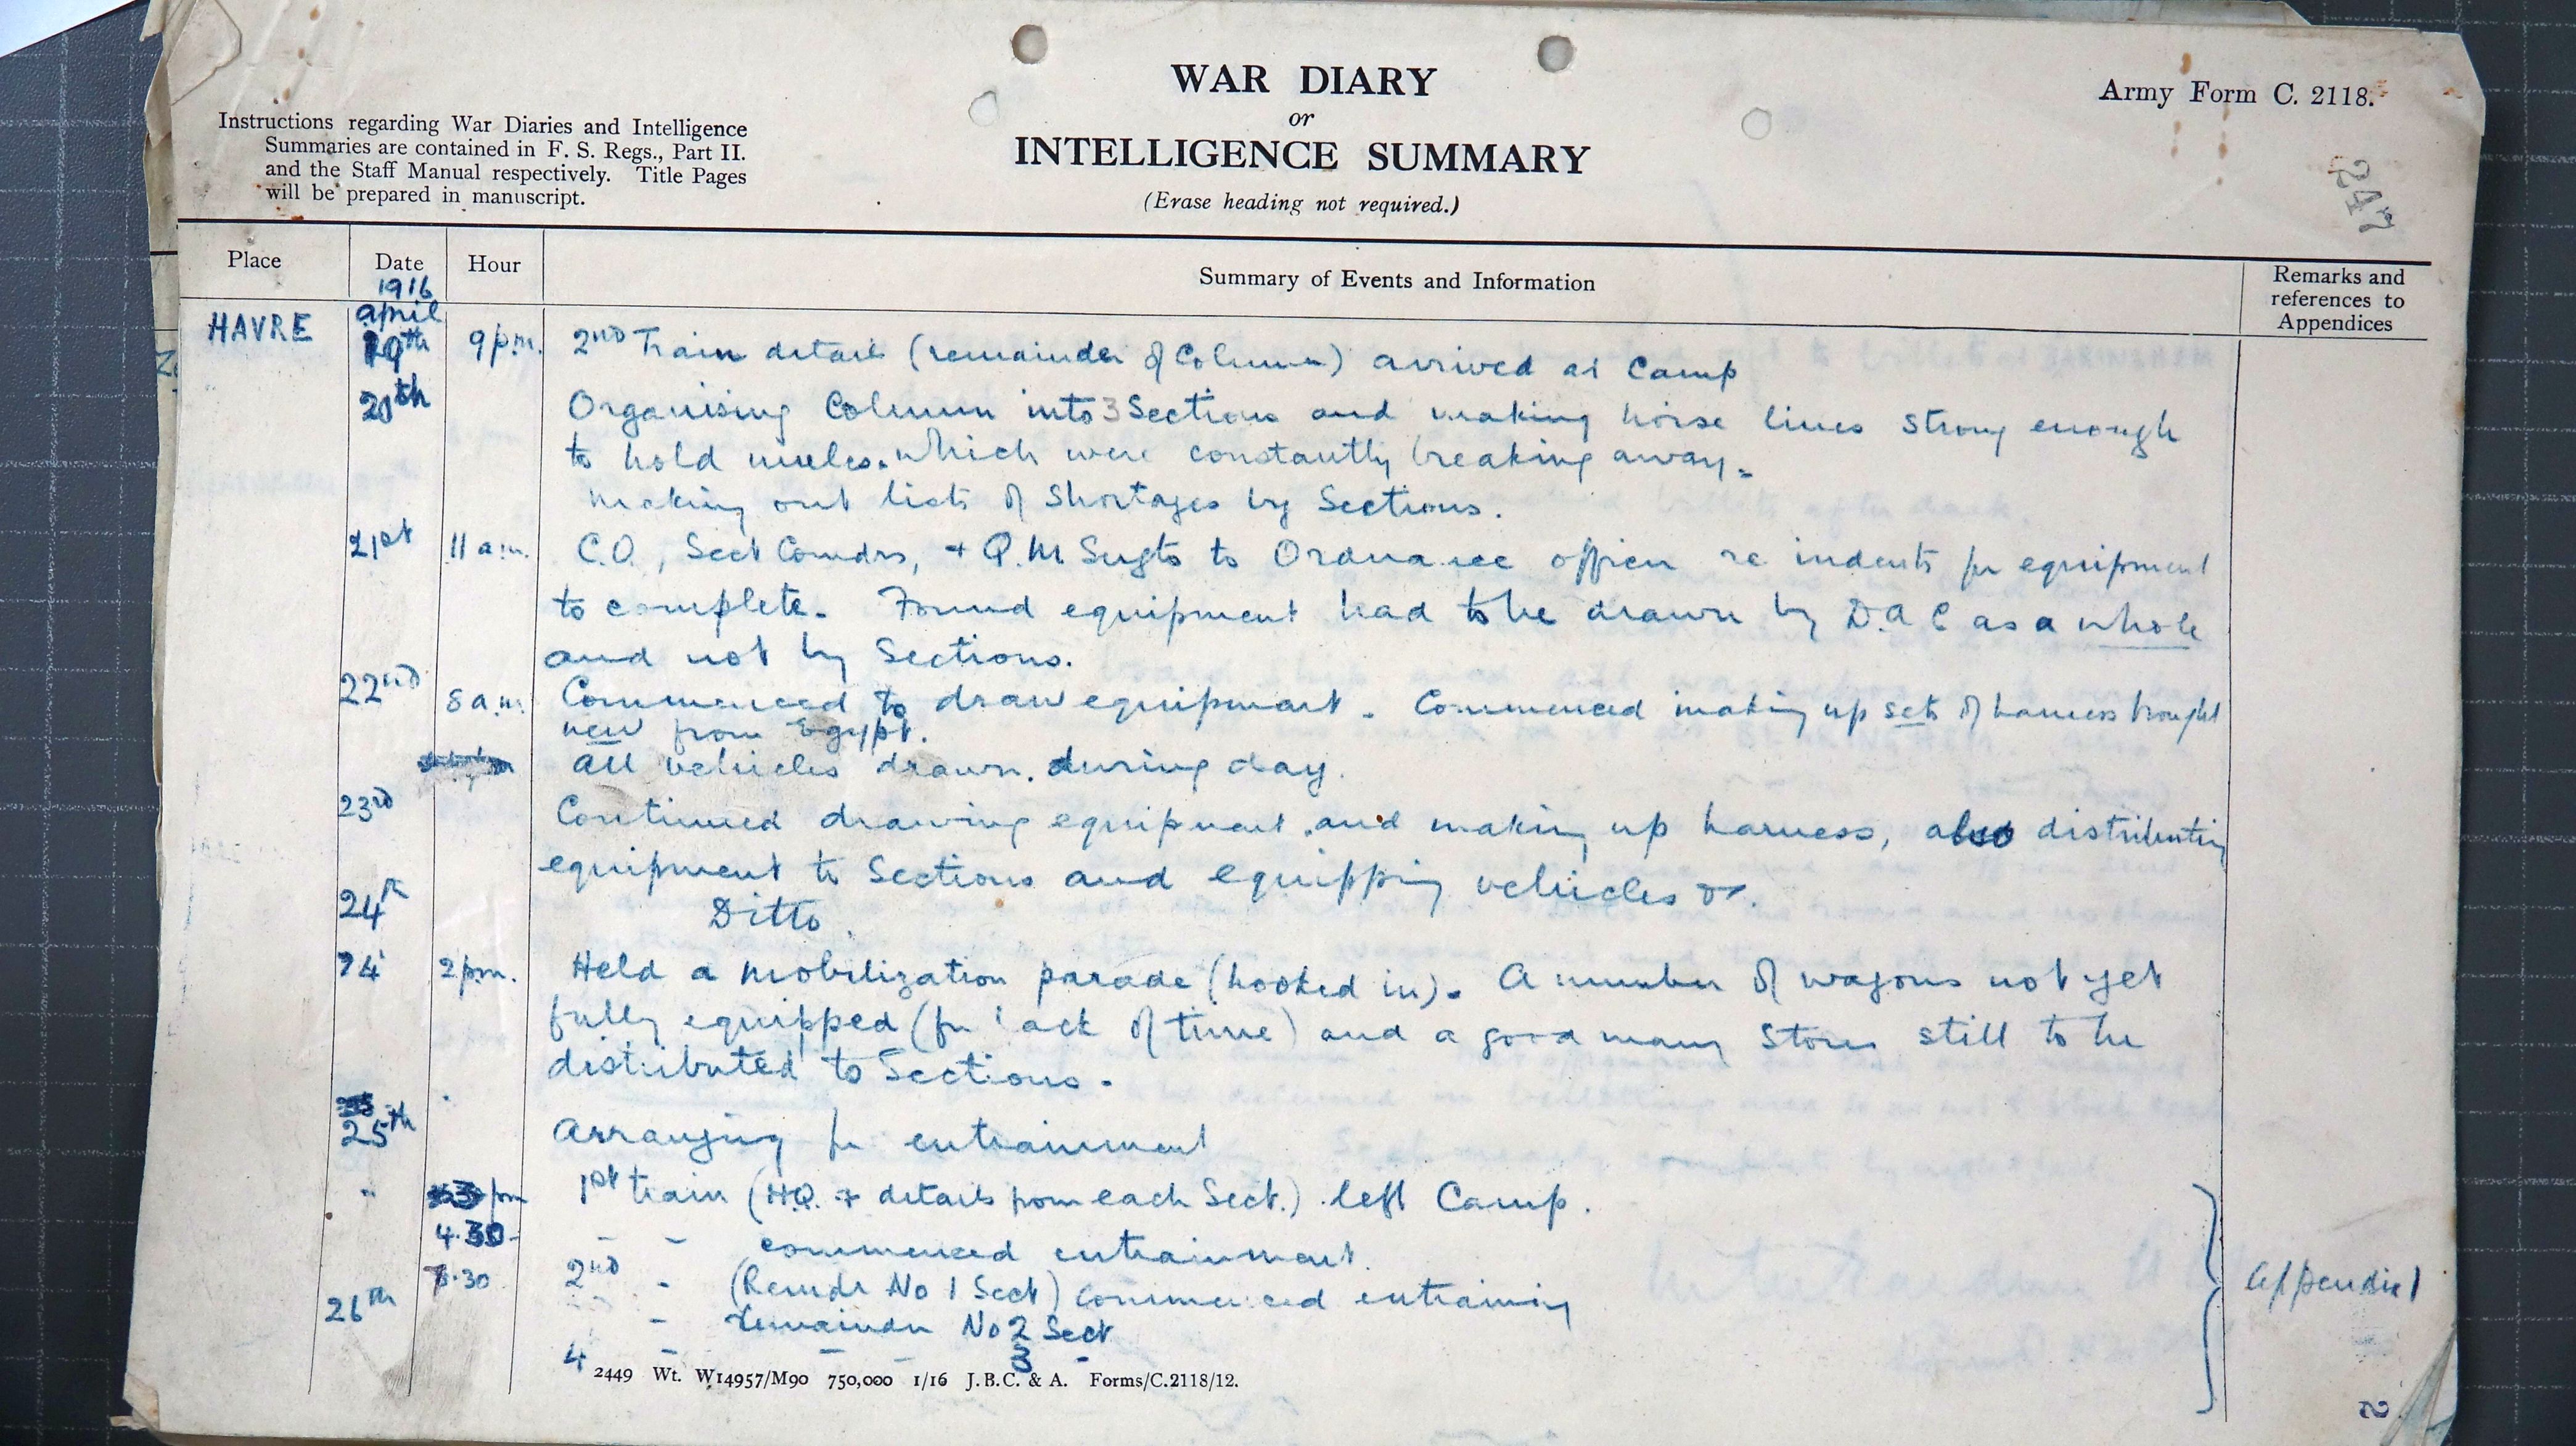 WAR DIARY
or
INTELLIGENCE SUMMARY
(Erase heading not required.)
Army Form C. 2118.
Instructions regarding War Diaries and Intelligence
Summaries are contained in F. S. Regs., Part II.
and the Staff Manual respectively. Title Pages
will be prepared in manuscript.
247
Place Date Hour Summary of Events and Information Remarks and references to Appendices
1916
HAVRE april
19th 9 p.m. 2nd Train details (remainder of Column) arrived at Camp
20th Organising Column into 3 Sections and making horse lines strong enough
to hold mules. which were constantly breaking away.
Making out lists of Shortages by Sections.
21st 11 a.m. C.O., Sect Comdrs, + Q.M Sergts to Ordnance officer re indents for equipment
to complete. Found equipment had to be drawn by D.A.C as a whole
and not by Sections.
22nd 8 a.m. Commenced to draw equipment. Commenced making up sets of harness brought
new from Egypt.
All vehicles drawn. during day.
23rd Continued drawing equipment and making up harness, also distributing
equipment to Sections and equipping vehicles &c.
24th Ditto.
24 2 p.m. Held a mobilization parade (hooked in). A number of wagons not yet
fully equipped (for lack of time) and a good many stores still to be
distributed to Sections.
25th Arranging for entrainment
" 3 pm 1st train (H.Q. + details from each Sect.) left Camp.
4.30 - - commenced entrainment.
7.30 2nd - (Remdr No 1 Sect) commenced entraining
26th - Remainder No 2 Sect
4 - - - 3 -
Appendix 1
2449 Wt. W14957/M90 750,000 1/16 J.B.C. & A. Forms/C.2118/12.
2